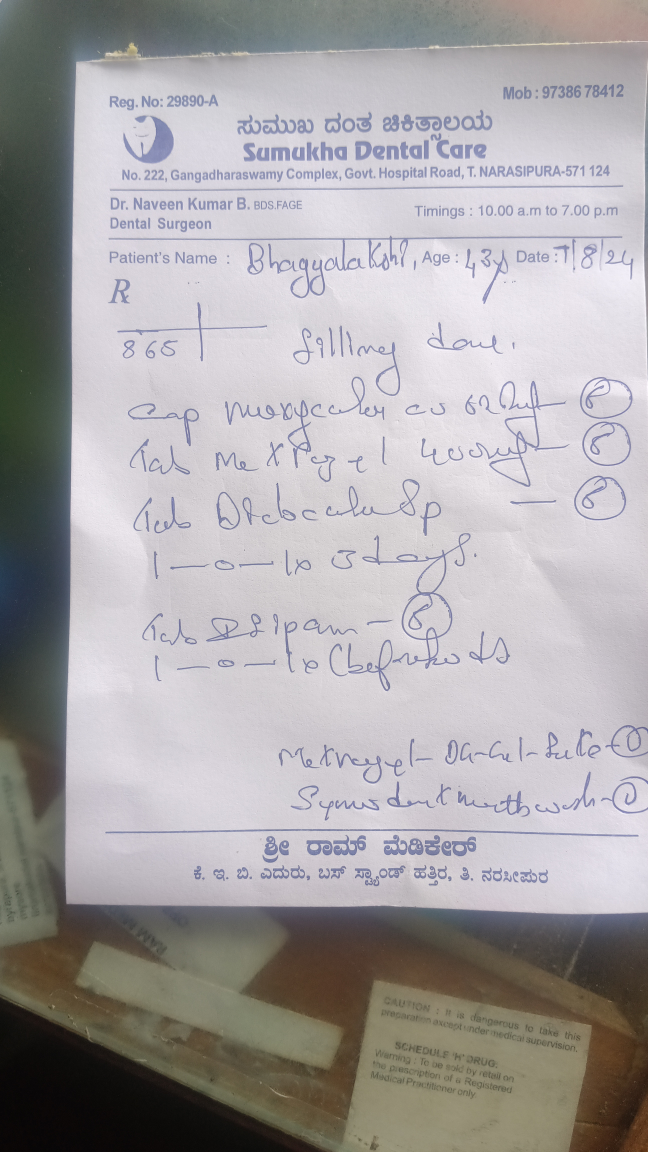 Reg. No: 29890-A
Mob : 97386 78412
ಸುಮುಖ ದಂತ ಚಿಕಿತ್ಸಾಲಯ
Sumukha Dental Care
No. 222, Gangadharaswamy Complex, Govt. Hospital Road, T. NARASIPURA-571 124
Dr. Naveen Kumar B. BDS.FAGE
Dental Surgeon
Timings : 10.00 a.m to 7.00 p.m
Patient's Name : Age : 43y Date : 7/8/24
℞
865 filling done.
Cap 625mg — 6
Tab Metrogyl 400mg — 6
Tab — 6
1 — 0 — 1 x 3 days.
Tab — 6
1 — 0 — 1 x
Metrogyl - DG - Gel - - 1
mouthwash - 1
ಶ್ರೀ ರಾಮ್ ಮೆಡಿಕೇರ್
ಕೆ. ಇ. ಬಿ. ಎದುರು, ಬಸ್ ಸ್ಟ್ಯಾಂಡ್ ಹತ್ತಿರ, ತಿ. ನರಸೀಪುರ
CAUTION : It is dangerous to take this
preparation except under medical supervision.
SCHEDULE 'H' DRUG:
Warning : To be sold by retail on
the prescription of a Registered
Medical Practitioner only